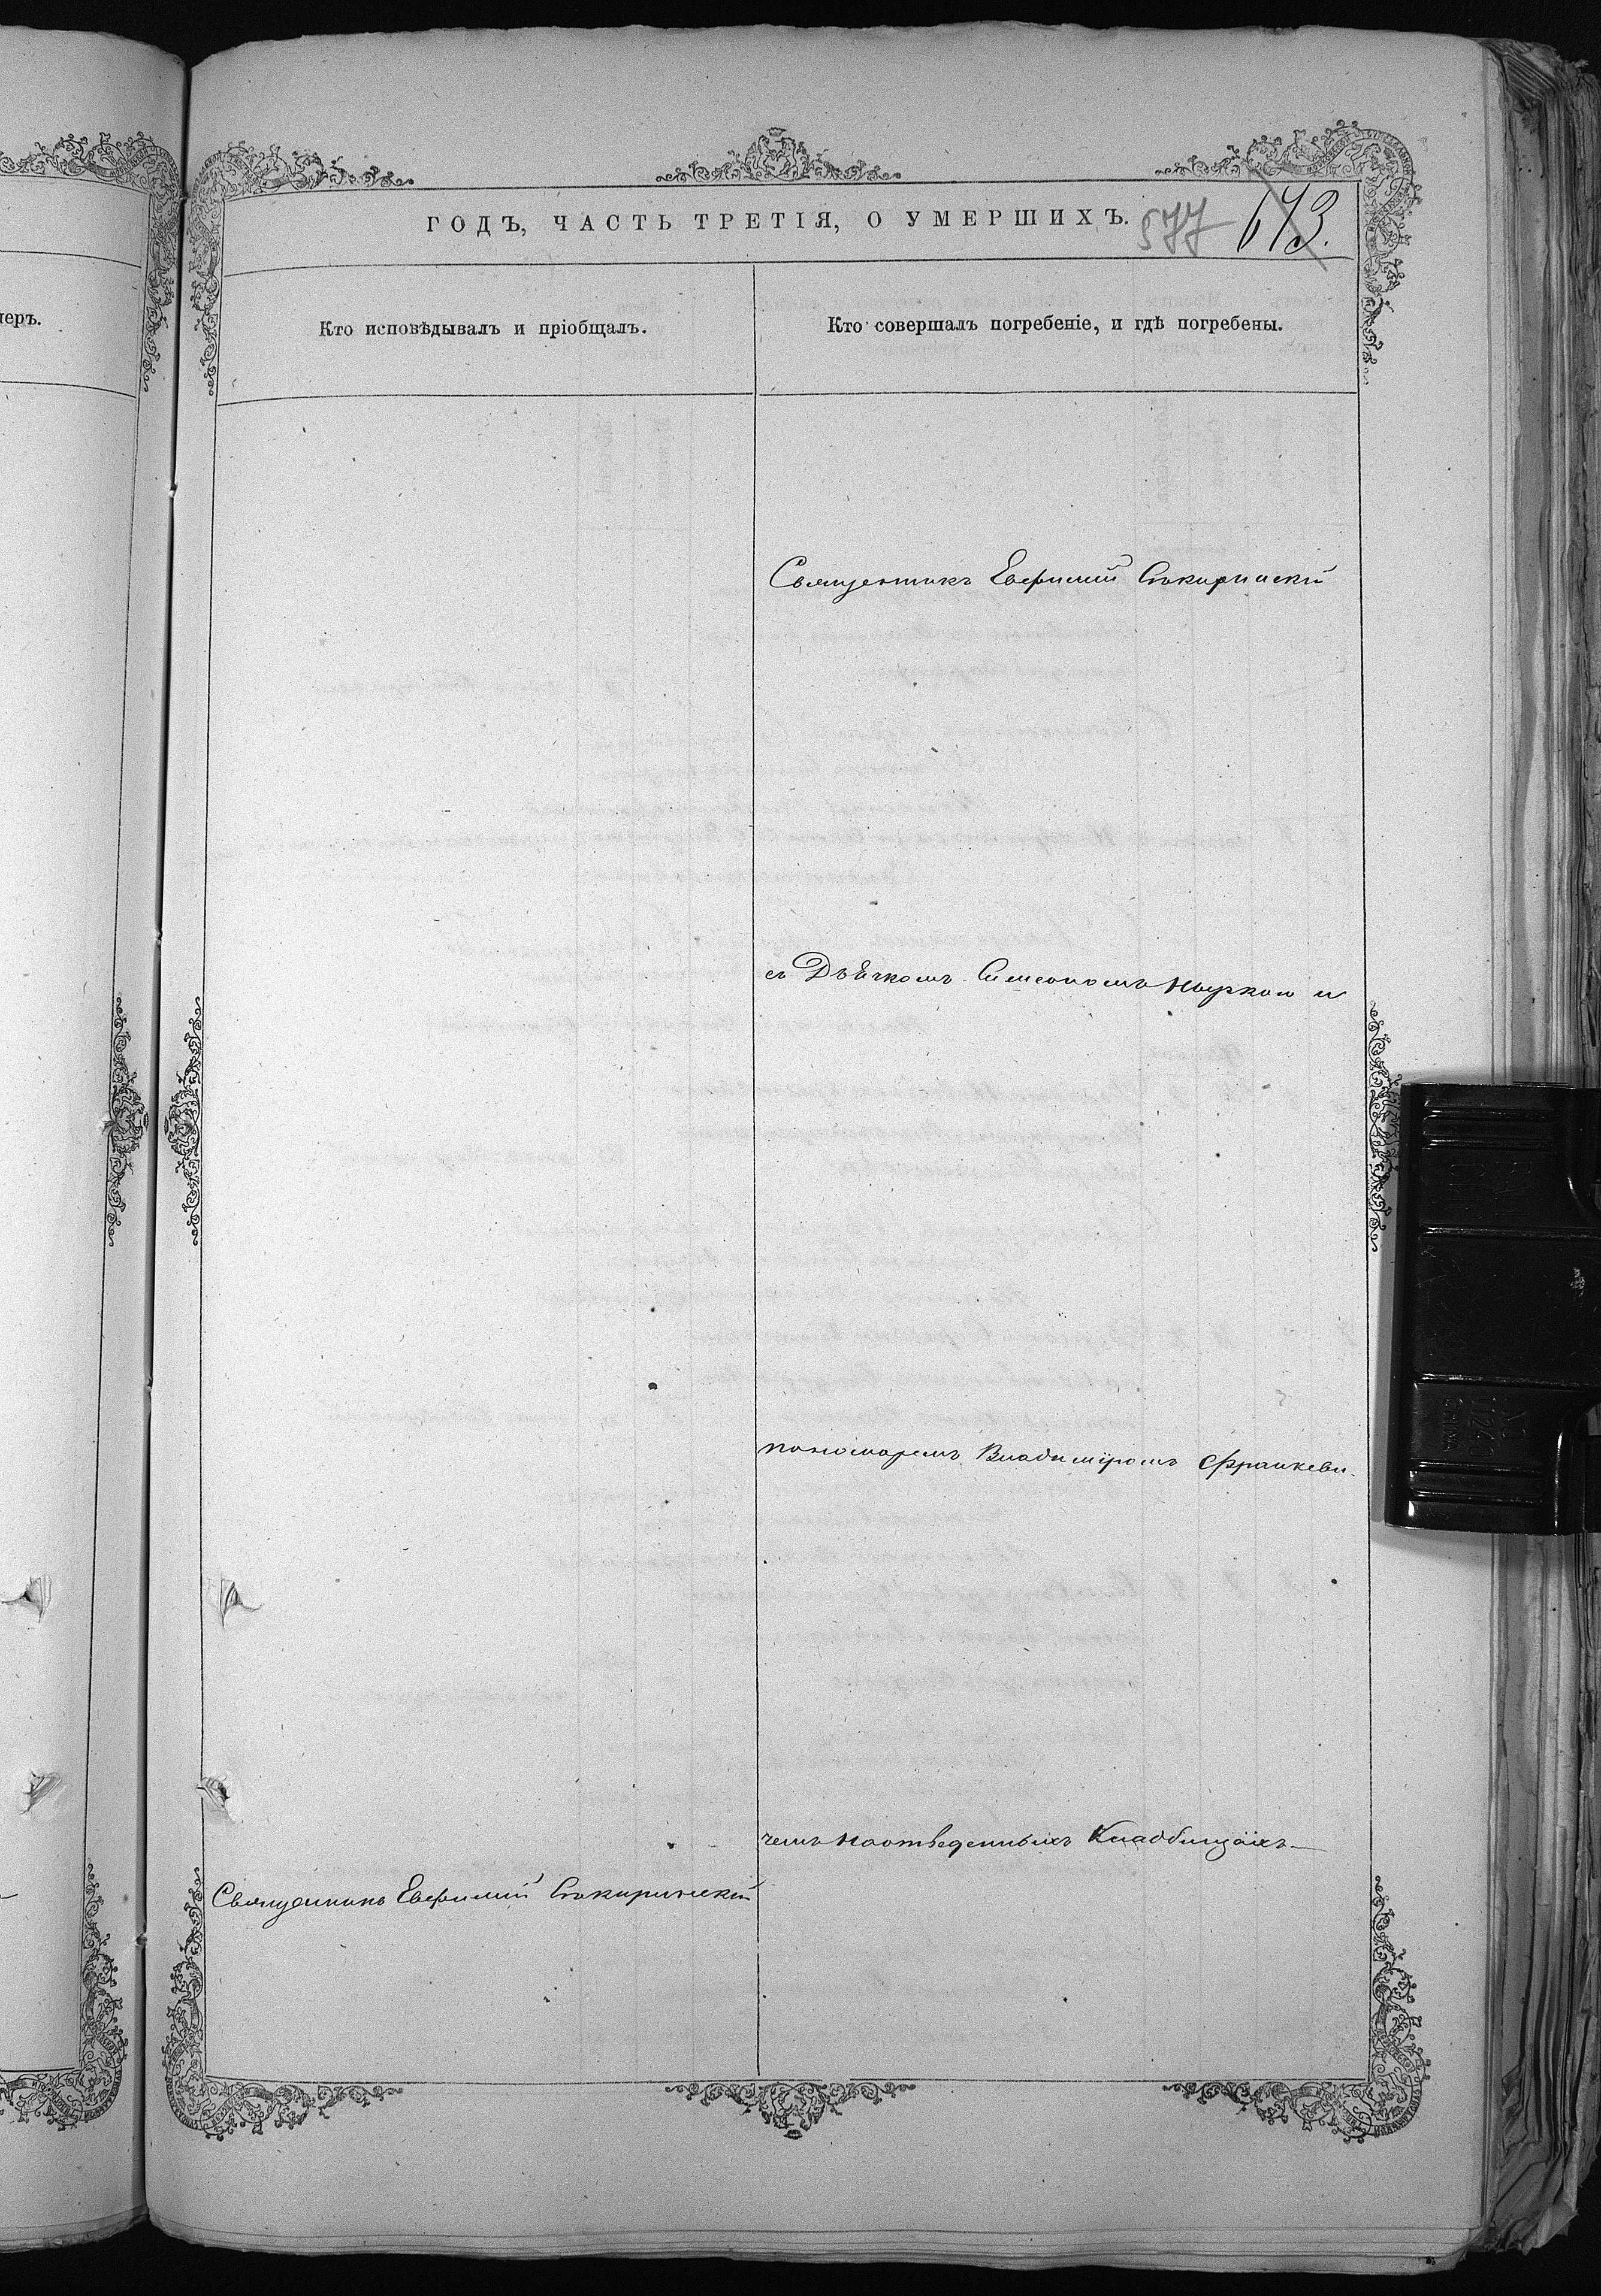 меръ.
ГОДЪ, ЧАСТЬ ТРЕТІЯ, О УМЕРШИХЪ.
577 673.
Кто исповѣдывалъ и пріобщалъ.
Кто совершалъ погребеніе, и гдѣ погребены.
Священникъ Евфимій Сѣкиринскій
съ Дьячкомъ Симеономъ и
пономаремъ Владиміромъ Франкеви-
чемъ на отведенныхъ Кладбищахъ
Священникъ Евфимій Сѣкиринскій